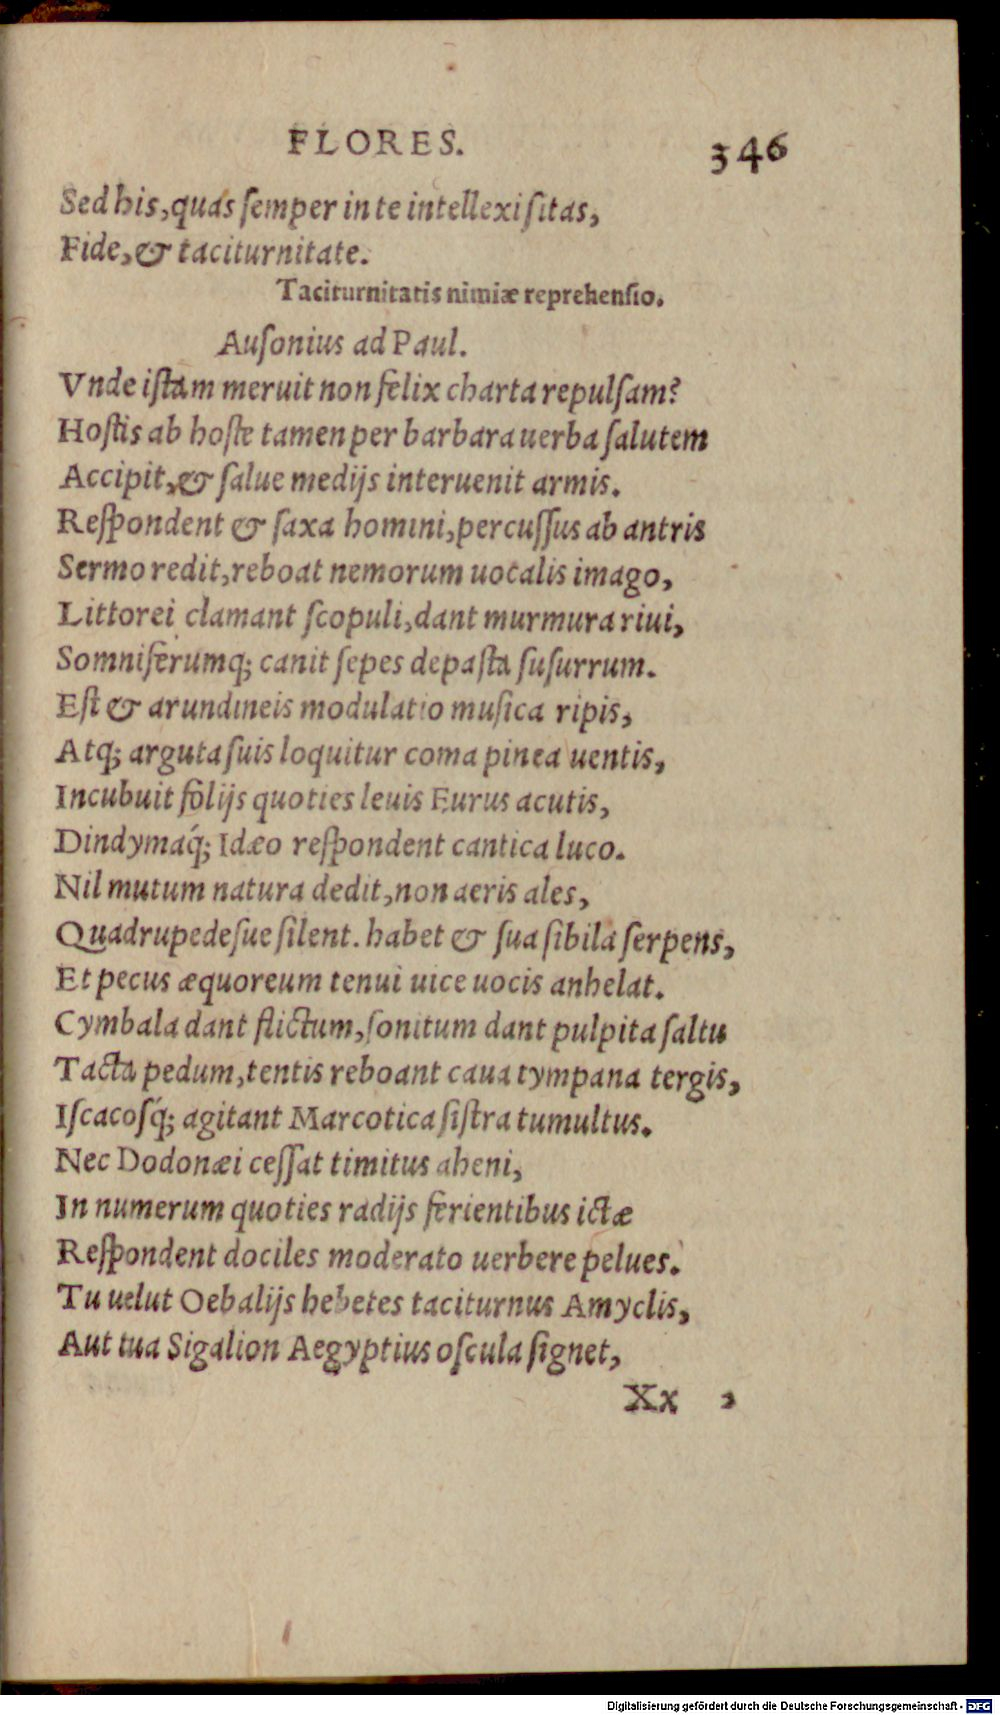 FLORES. 346
Sed his, quas semper in te intellexi sitas,
Fide, & taciturnitate.
Taciturnitatis nimiæ reprehensio.
Ausonius ad Paul.
Vnde istam meruit non felix charta repulsam?
Hostis ab hoste tamen per barbara uerba salutem
Accipit, & salue medijs interuenit armis.
Respondent & saxa homini, percussus ab antris
Sermo redit, reboat nemorum uocalis imago,
Littorei clamant scopuli, dant murmura riui,
Somniferumq; canit sepes depasta susurrum.
Est & arundineis modulatio musica ripis,
Atq; arguta suis loquitur coma pinea uentis,
Incubuit folijs quoties leuis Eurus acutis,
Dindymaq́; Idæo respondent cantica luco.
Nil mutum natura dedit, non aeris ales,
Quadrupedesue silent. habet & sua sibila serpens,
Et pecus æquoreum tenui uice uocis anhelat.
Cymbala dant flictum, sonitum dant pulpita saltu
Tacta pedum, tentis reboant caua tympana tergis,
Iscacosq́; agitant Marcotica sistra tumultus.
Nec Dodonæi cessat timitus aheni,
In numerum quoties radijs ferientibus ictæ
Respondent dociles moderato uerbere pelues.
Tu uelut Oebalijs hebetes taciturnus Amyclis,
Aut tua Sigalion Aegyptius oscula signet,
Xx 2
Digitalisierung gefördert durch die Deutsche Forschungsgemeinschaft - DFG